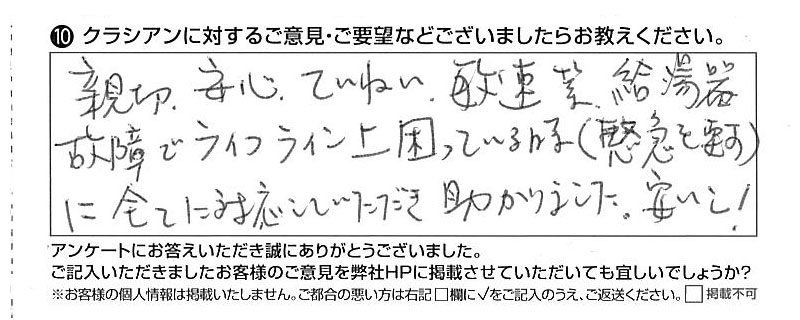 ⑩ クラシアンに対するご意見・ご要望などございましたらお教えください。
親切、安心、ていねい、敏速、給湯器
故障でライフライン上困っている時(緊急を要す)
に全てに対応していただき助かりました。安いし!
アンケートにお答えいただき誠にありがとうございました。
ご記入いただきましたお客様のご意見を弊社HPに掲載させていただいても宜しいでしょうか?
※お客様の個人情報は掲載いたしません。ご都合の悪い方は右記□欄に√をご記入のうえ、ご返送ください。□掲載不可